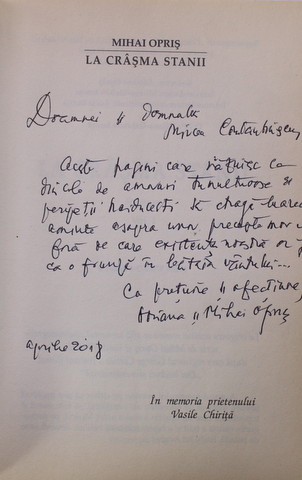 MIHAI OPRIȘ
LA CRÂȘMA STANII
Doamnei și Domnului
Mircea
Aceste pagini care
de amoruri tumultuoase și
peripeții haiducești
aminte asupra unor precepte
fără de care existența noastră ar fi
ca o frunză în bătaia vântului...
Cu prețuire și afecțiune,
Adriana și Mihai Opriș
aprilie 2018
În memoria prietenului
Vasile Chiriță